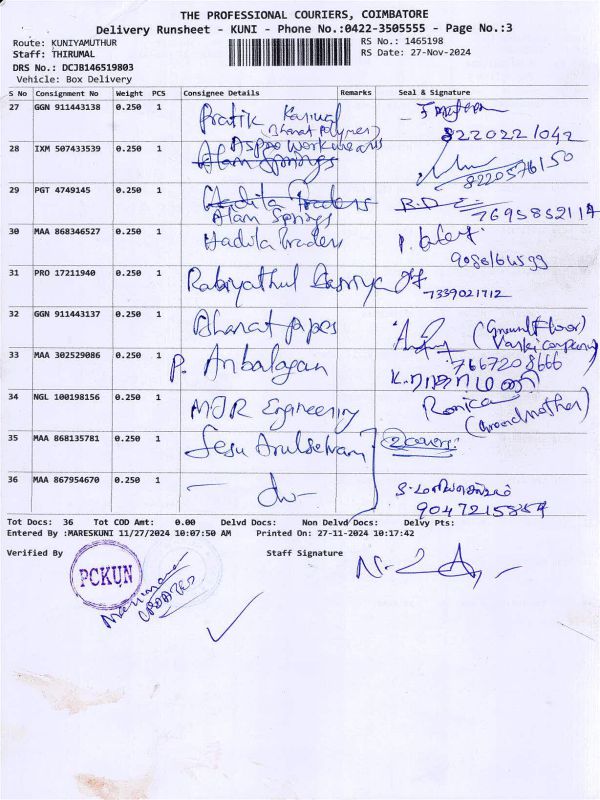 THE PROFESSIONAL COURIERS, COIMBATORE
Delivery Runsheet - KUNI - Phone No.:0422-3505555 - Page No.:3
Route: KUNIYAMUTHUR
RS No.: 1465198
Staff: THIRUMAL
RS Date: 27-Nov-2024
DRS No.: DCJB146519803
Vehicle: Box Delivery
S No Consignment No Weight PCS Consignee Details Remarks Seal & Signature
27 GGN 911443138 0.250 1 Pratik
(Bharat Polymer)
8220221042
28 IXM 507433539 0.250 1 Aspro Workwears
Alam Springs
8220576150
29 PGT 4749145 0.250 1 Hadila Traders
Alam Springs
7695852114
30 MAA 868346527 0.250 1 Hadila Traders
31 PRO 17211940 0.250 1 Rabiyathul
7339021712
32 GGN 911443137 0.250 1 Bharat papes
(Ground Floor)
7667208666
33 MAA 302529086 0.250 1 P. Anbalagan
34 NGL 100198156 0.250 1 MJR Engineering
Ronica
(Grandmother)
35 MAA 868135781 0.250 1 Jesu Arulselvam
2 covers.
36 MAA 867954670 0.250 1 - do -
Tot Docs: 36 Tot COD Amt: 0.00 Delvd Docs: Non Delvd Docs: Delvy Pts:
Entered By :MARESKUNI 11/27/2024 10:07:50 AM Printed On: 27-11-2024 10:17:42
Verified By Staff Signature
PCKUN
UPDATED